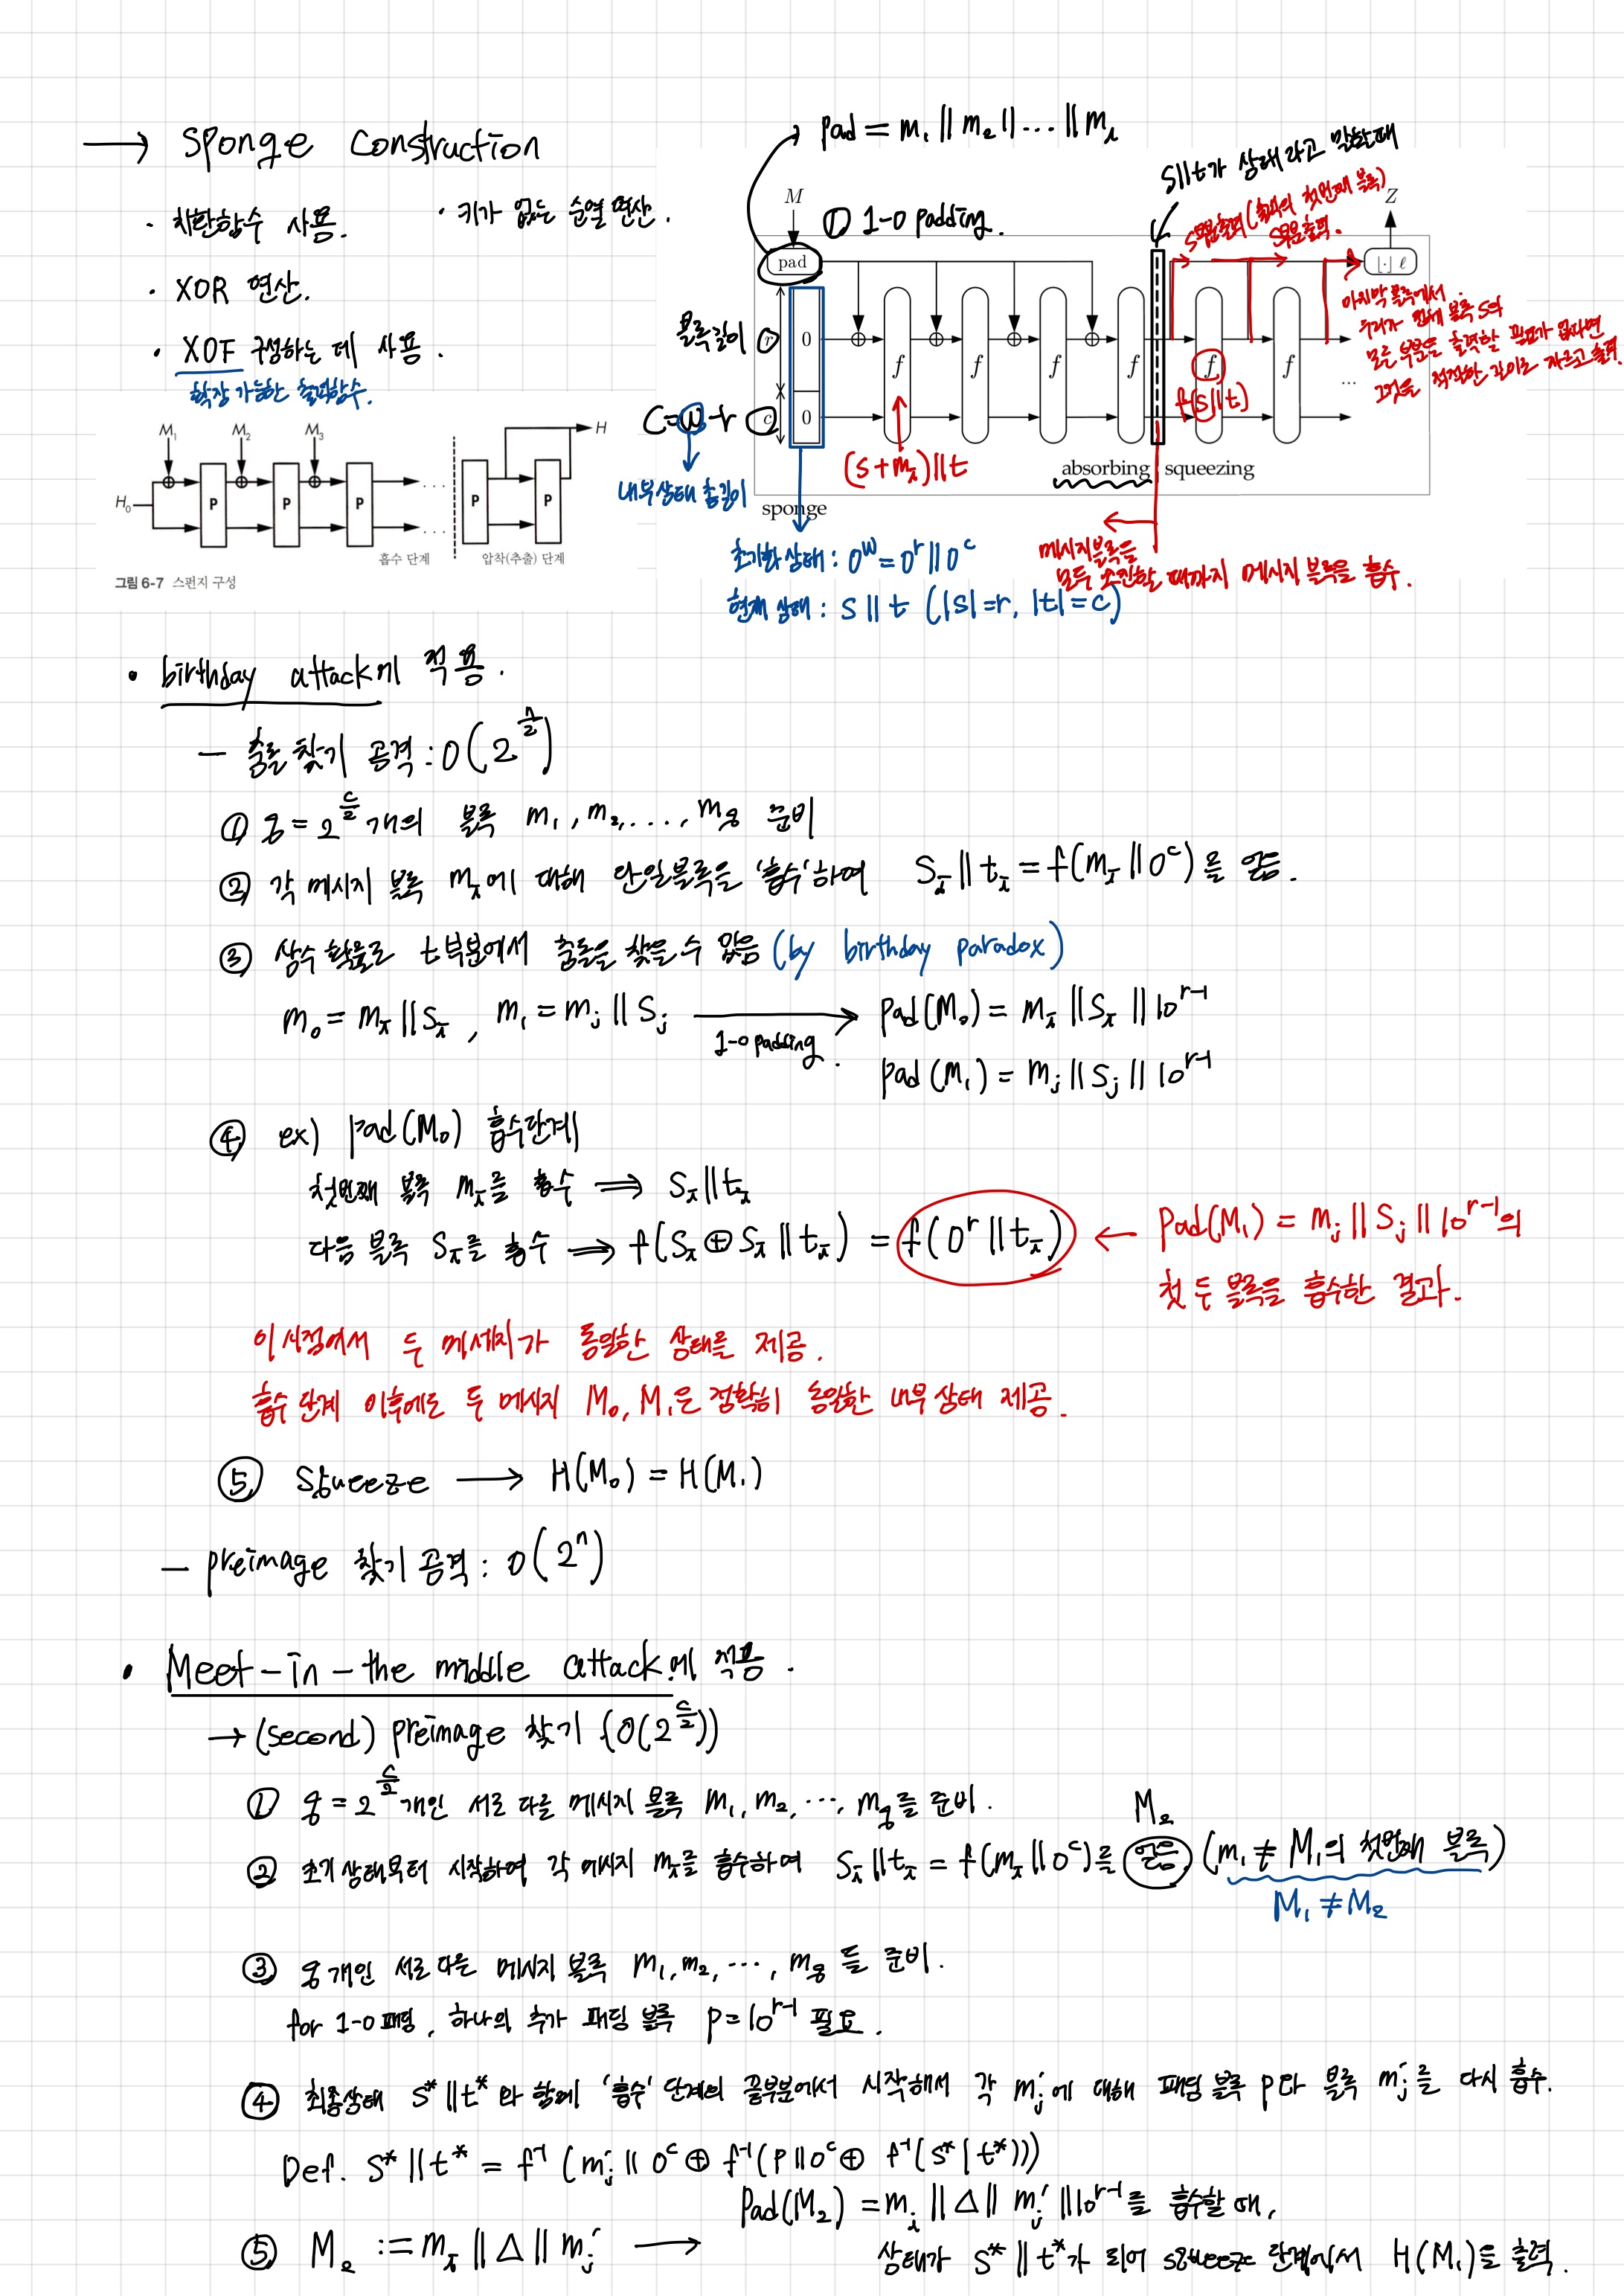 → Sponge Construction
· 치환함수 사용. · 키가 없는 순열 연산.
· XOR 연산.
· XOF 구성하는 데 사용.
확장 가능한 출력함수.
M₁ M₂ M₃ H
H₀ P P P ... P P
흡수 단계 압착(추출) 단계
그림 6-7 스펀지 구성
pad = m₁ || m₂ || ... || mᵢ
S||t가 상태라고 말할때
M ① 1-0 padding. Z
S블록출력(출력의 첫번째 블록)
S블록출력.
pad ⌊·⌋ ℓ
마지막 블록에서
우리가 전체 블록 S의
모든 부분을 출력할 필요가 없다면
그것을 적절한 길이로 자르고 출력.
블록길이 r 0 f f f f f f ...
f(S||t)
C=w-r c 0
내부상태 총길이
(S+mᵢ)||t
absorbing squeezing
sponge
초기화상태: 0ʷ = 0ʳ || 0ᶜ
현재 상태: S || t (|S|=r, |t|=c)
메시지블록을
모두 소진할 때까지 메시지 블록을 흡수.
• birthday attack에 적용.
- 충돌 찾기 공격: O(2^(n/2))
① q = 2^(c/2) 개의 블록 m₁, m₂, ..., m_q 준비
② 각 메시지 블록 mᵢ에 대해 단일블록을 '흡수'하여 Sᵢ || tᵢ = f(mᵢ || 0ᶜ)을 얻음.
③ 상수 확률로 t부분에서 충돌을 찾을 수 있음 (by birthday paradox)
m₀ = mᵢ || Sᵢ , m₁ = mⱼ || Sⱼ → 1-0 padding. pad(M₀) = mᵢ || Sᵢ || 10^(r-1)
pad(M₁) = mⱼ || Sⱼ || 10^(r-1)
④ ex) pad(M₀) 흡수단계
첫번째 블록 mᵢ를 흡수 ⟹ Sᵢ || tᵢ
다음 블록 Sᵢ를 흡수 ⟹ f(Sᵢ ⊕ Sᵢ || tᵢ) = f(0ʳ || tᵢ) ← pad(M₁) = mⱼ || Sⱼ || 10^(r-1)의
첫 두 블록을 흡수한 결과.
이 시점에서 두 메세지가 동일한 상태를 제공.
흡수 단계 이후에도 두 메시지 M₀, M₁은 정확히 동일한 내부 상태 제공.
⑤ Squeeze → H(M₀) = H(M₁)
- preimage 찾기 공격: O(2ⁿ)
• Meet-in-the middle attack에 적용.
→ (second) preimage 찾기 (O(2^(c/2)))
① q = 2^(c/2) 개인 서로 다른 메시지 블록 m₁, m₂, ..., m_q를 준비.
M₂
② 초기 상태부터 시작하여 각 메시지 mᵢ를 흡수하여 Sᵢ || tᵢ = f(mᵢ || 0ᶜ)를 얻음. (m₁ ≠ M₁의 첫번째 블록)
M₁ ≠ M₂
③ q개인 서로다른 메시지 블록 m₁, m₂, ..., m_q 들 준비.
for 1-0 패딩, 하나의 추가 패딩 블록 P=10^(r-1) 필요.
④ 최종상태 S* || t* 와 함께 '흡수' 단계의 끝부분에서 시작해서 각 mⱼ′에 대해 패딩 블록 p와 블록 mⱼ′를 다시 흡수.
Def. S* || t* = f⁻¹(mⱼ′ || 0ᶜ ⊕ f⁻¹(P || 0ᶜ ⊕ f⁻¹(S* | t*)))
pad(M₂) = mᵢ || △ || mⱼ′ || 10^(r-1)를 흡수할 때,
⑤ M₂ := mᵢ || △ || mⱼ′ → 상태가 S* || t*가 되어 squeeze 단계에서 H(M₁)을 출력.